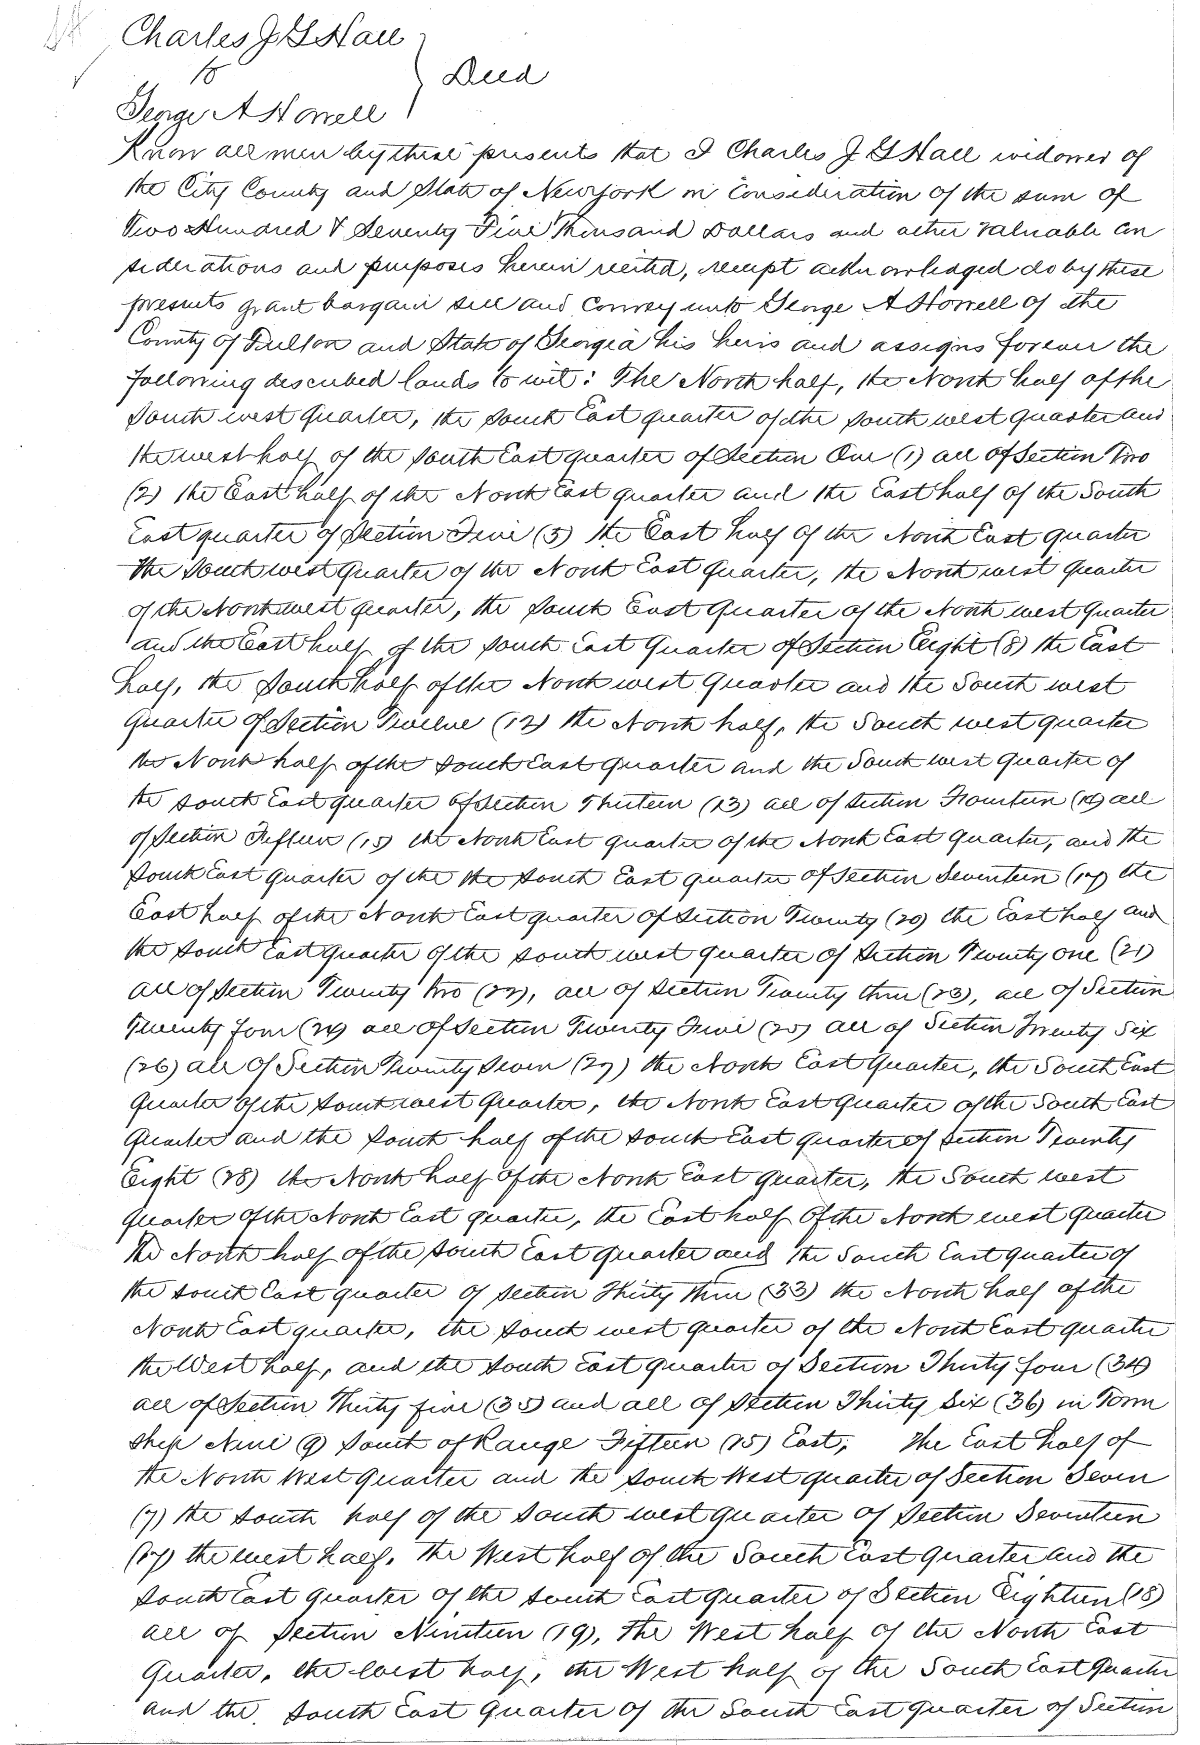 Charles J G Hall
to
Deed
George A Howell
Know all men by these presents that I Charles J G Hall widower of
the City County and State of New York in consideration of the sum of
Two Hundred & Seventy Five Thousand Dollars and other valuable con
siderations and purposes herein recited, receipt acknowledged do by these
presents grant bargain sell and convey unto George A Howell of the
County of Fulton and State of Georgia his heirs and assigns forever the
following described lands to wit: The North half, the North half of the
South west quarter, the South East quarter of the South west quarter and
the west half of the South East quarter of Section One (1) all of Section Two
(2) the East half of the North East quarter and the East half of the South
East quarter of Section Five (5) the East half of the North East quarter
the South west quarter of the North East quarter, the North west quarter
of the North west quarter, the South East quarter of the North west quarter
and the East half of the South East quarter of Section Eight (8) the East
half, the South half of the North west quarter and the South west
quarter of Section Twelve (12) the North half, the South west quarter
the North half of the South East quarter and the South west quarter of
the South East quarter of Section Thirteen (13) all of Section Fourteen (14) all
of Section Fifteen (15) the North East quarter of the North East quarter, and the
South East quarter of the the South East quarter of Section Seventeen (17) the
East half of the North East quarter of Section Twenty (20) the East half and
the South East quarter of the South west quarter of Section Twenty one (21)
all of Section Twenty Two (22), all of Section Twenty three (23), all of Section
Twenty four (24) all of Section Twenty Five (25) all of Section Twenty Six
(26) all of Section Twenty Seven (27) the North East quarter, the South East
quarter of the South west quarter, the North East quarter of the South East
quarter and the South half of the South East quarter of Section Twenty
Eight (28) the North half of the North East quarter, the South west
quarter of the North East quarter, the East half of the North west quarter
the North half of the South East quarter and the South East quarter of
the South East quarter of Section Thirty three (33) the North half of the
North East quarter, the South west quarter of the North East quarter
the West half, and the South East quarter of Section Thirty four (34)
all of Section Thirty five (35) and all of Section Thirty Six (36) in Town
ship Nine (9) South of Range Fifteen (15) East; The East half of
the North West quarter and the South West quarter of Section Seven
(7) the South half of the South west quarter of Section Seventeen
(17) the west half, the West half of the South East quarter and the
South East quarter of the South East quarter of Section Eighteen (18)
all of Section Nineteen (19), the West half of the North East
quarter, the West half, the West half of the South East quarter
and the South East quarter of the South East quarter of Section